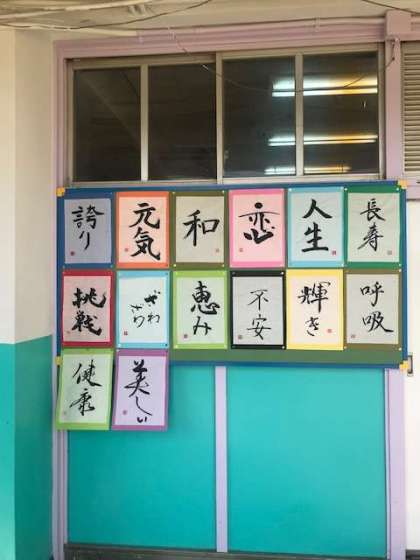 誇り
元気
和
恋
人生
長寿
挑戦
ざわ
恵み
不安
輝き
呼吸
健康
美しい